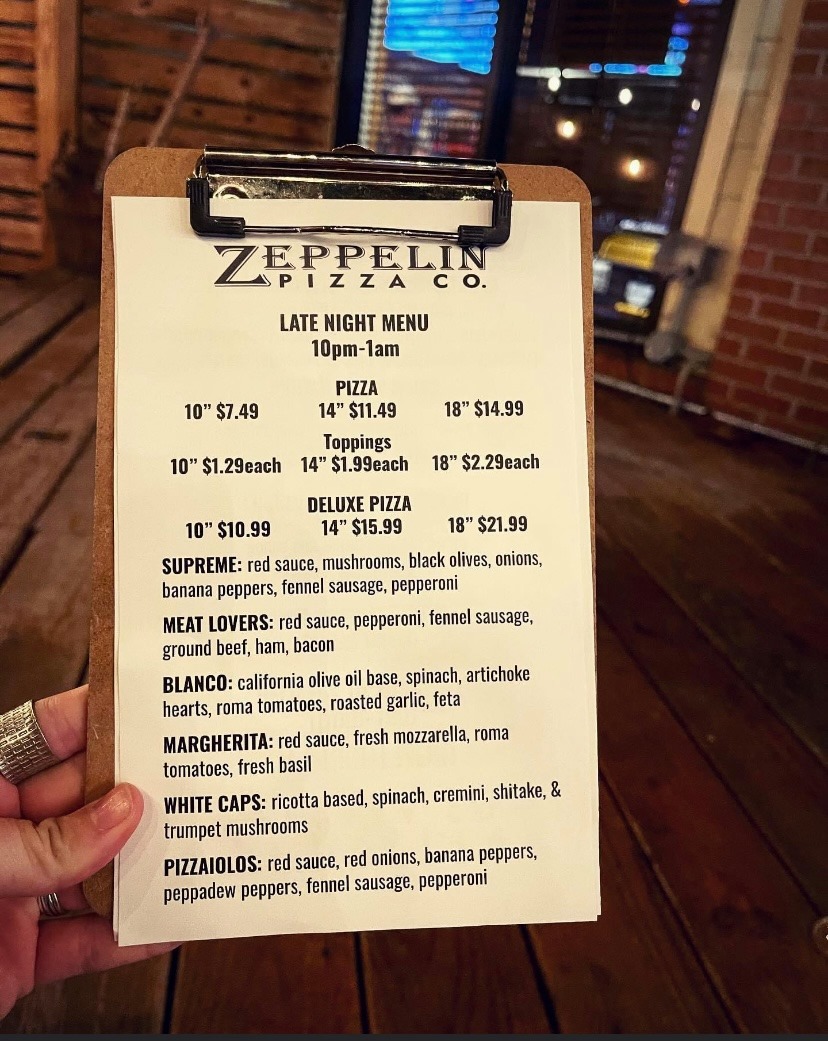 ZEPPELIN
PIZZA CO.
LATE NIGHT MENU
10pm-1am
PIZZA
10” $7.49 14” $11.49 18” $14.99
Toppings
10” $1.29each 14” $1.99each 18” $2.29each
DELUXE PIZZA
10” $10.99 14” $15.99 18” $21.99
SUPREME: red sauce, mushrooms, black olives, onions,
banana peppers, fennel sausage, pepperoni
MEAT LOVERS: red sauce, pepperoni, fennel sausage,
ground beef, ham, bacon
BLANCO: california olive oil base, spinach, artichoke
hearts, roma tomatoes, roasted garlic, feta
MARGHERITA: red sauce, fresh mozzarella, roma
tomatoes, fresh basil
WHITE CAPS: ricotta based, spinach, cremini, shitake, &
trumpet mushrooms
PIZZAIOLOS: red sauce, red onions, banana peppers,
peppadew peppers, fennel sausage, pepperoni